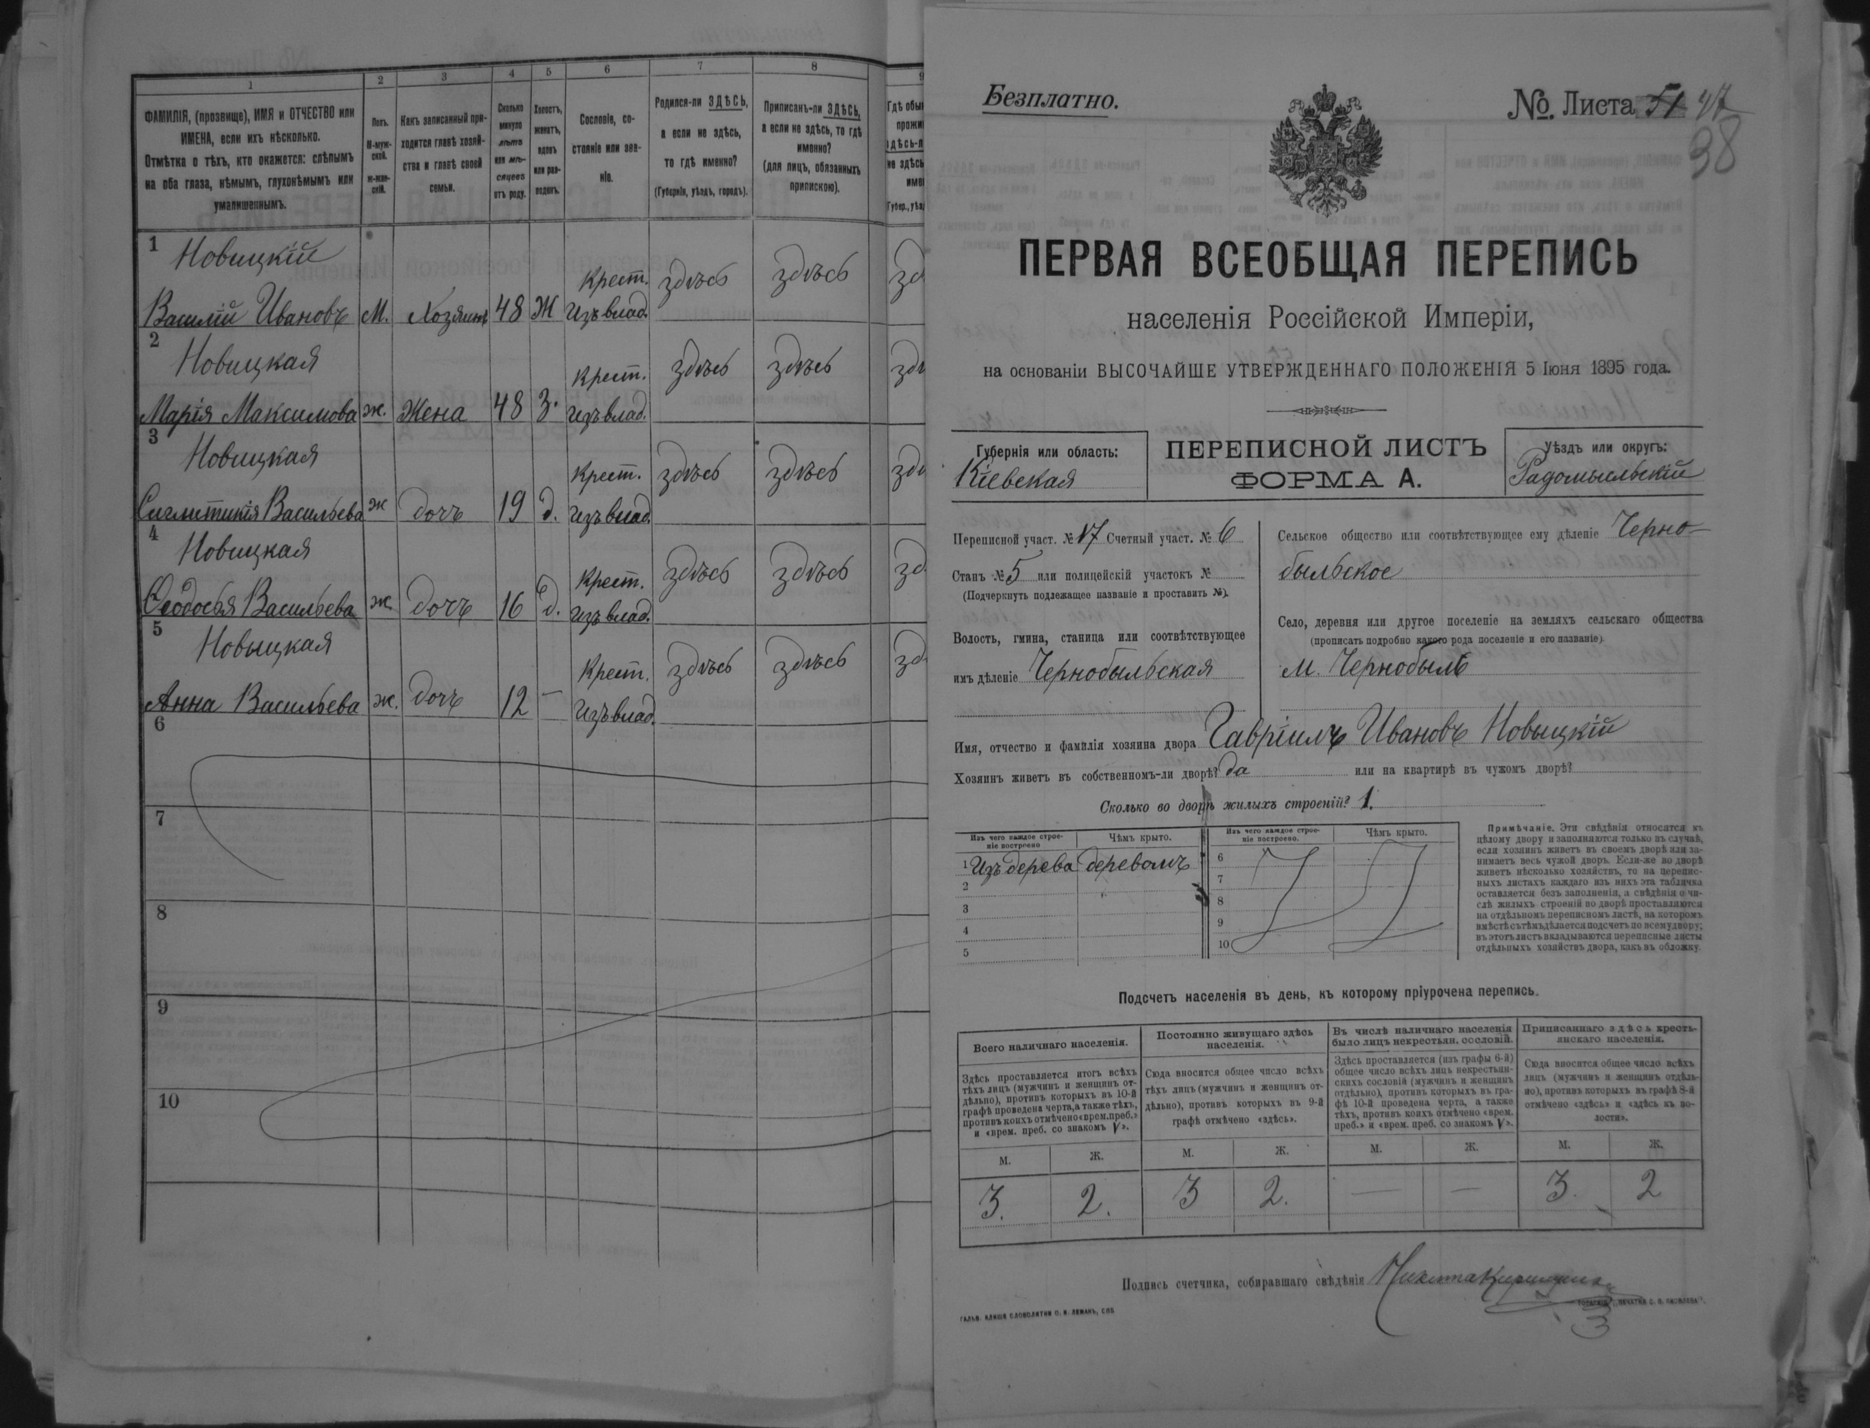 1 2 3 4 5 6 7 8 9
ФАМИЛІЯ, (прозвище), ИМЯ и ОТЧЕСТВО или
ИМЕНА, если ихъ нѣсколько.
Отмѣтка о тѣхъ, кто окажется: слѣпымъ
на оба глаза, нѣмымъ, глухонѣмымъ или
умалишеннымъ.
Полъ.
М-муж-
ской.
ж-жен-
скій.
Какъ записанный при-
ходится главѣ хозяй-
ства и главѣ своей
семьи.
Сколько
минуло
лѣтъ
или мѣ-
сяцевъ
отъ роду.
Холостъ,
женатъ,
вдовъ
или раз-
веденъ.
Сословіе, со-
стояніе или зва-
ніе.
Родился-ли ЗДѢСЬ,
а если не здѣсь,
то гдѣ именно?
(Губернія, уѣздъ, городъ).
Приписанъ-ли ЗДѢСЬ,
а если не здѣсь, то гдѣ
именно?
(для лицъ, обязанныхъ
припискою).
1
Новицкій
Василій Ивановъ М. Хозяинъ 48 Ж Крест. Изъ влад. здѣсь здѣсь
2
Новицкая
Марія Максимова ж. Жена 48 З. Крест. Изъ влад. здѣсь здѣсь
3
Новицкая
Васильева ж дочь 19 д. Крест. Изъ влад. здѣсь здѣсь
4
Новицкая
Ѳеодосья Васильева ж. дочь 16 д. Крест. Изъ влад. здѣсь здѣсь
5
Новыцкая
Анна Васильева ж. дочь 12 — Крест. Изъ влад. здѣсь здѣсь
6
7
8
9
10
Безплатно.
№ Листа 51 47
38
ПЕРВАЯ ВСЕОБЩАЯ ПЕРЕПИСЬ
населенія Россійской Имперіи,
на основаніи ВЫСОЧАЙШЕ УТВЕРЖДЕННАГО ПОЛОЖЕНІЯ 5 Іюня 1895 года.
Губернія или область:
Кіевская
ПЕРЕПИСНОЙ ЛИСТЪ
ФОРМА А.
Уѣздъ или округъ:
Радомысльскій
Переписной участ. № 17 Счетный участ. № 6
Станъ № 5 или полицейскій участокъ №
(Подчеркнуть подлежащее названіе и проставить №).
Волость, гмина, станица или соотвѣтствующее
имъ дѣленіе Чернобыльская
Сельское общество или соотвѣтствующее ему дѣленіе Черно-
быльское
Село, деревня или другое поселеніе на земляхъ сельскаго общества
(прописать подробно какого рода поселеніе и его названіе).
м. Чернобыль
Имя, отчество и фамилія хозяина двора Гавріилъ Ивановъ Новыцкій
Хозяинъ живетъ въ собственномъ-ли дворѣ? да или на квартирѣ въ чужомъ дворѣ?
Сколько во дворѣ жилыхъ строеній? 1.
Изъ чего каждое строе-
ніе построено
Чѣмъ крыто.
Изъ чего каждое строе-
ніе построено.
Чѣмъ крыто.
1 Изъ дерева деревомъ
2
3
4
5
6
7
8
9
10
Примѣчаніе. Эти свѣдѣнія относятся къ
цѣлому двору и заполняются только въ случаѣ,
если хозяинъ живетъ въ своемъ дворѣ или за-
нимаетъ весь чужой дворъ. Если-же во дворѣ
живетъ нѣсколько хозяйствъ, то на перепис-
ныхъ листахъ каждаго изъ нихъ эта табличка
оставляется безъ заполненія, а свѣдѣнія о чи-
слѣ жилыхъ строеній во дворѣ проставляются
на отдѣльномъ переписномъ листѣ, на которомъ
вмѣстѣ съ тѣмъ дѣлается подсчетъ по всему двору;
въ этотъ листъ вкладываются переписные листы
отдѣльныхъ хозяйствъ двора, какъ въ обложку.
Подсчетъ населенія въ день, къ которому пріурочена перепись.
Всего наличнаго населенія.
Здѣсь проставляется итогъ всѣхъ
тѣхъ лицъ (мужчинъ и женщинъ от-
дѣльно), противъ которыхъ въ 10-й
графѣ проведена черта, а также тѣхъ,
противъ коихъ отмѣчено «врем. преб.»
и «врем. преб. со знакомъ V».
Постоянно живущаго здѣсь
населенія.
Сюда вносится общее число всѣхъ
тѣхъ лицъ (мужчинъ и женщинъ от-
дѣльно), противъ которыхъ въ 9-й
графѣ отмѣчено «здѣсь».
Въ числѣ наличнаго населенія
было лицъ некрестьян. сословій.
Здѣсь проставляется (изъ графы 6-й)
общее число всѣхъ лицъ некрестьян-
скихъ сословій (мужчинъ и женщинъ
отдѣльно), противъ которыхъ въ гра-
фѣ 10-й проведена черта, а также
тѣхъ, противъ коихъ отмѣчено «врем.
преб.» и «врем. преб. со знакомъ V».
Приписаннаго здѣсь кресть-
янскаго населенія.
Сюда вносится общее число всѣхъ
лицъ (мужчинъ и женщинъ отдѣль-
но), противъ которыхъ въ графѣ 8-й
отмѣчено «здѣсь» и «здѣсь въ во-
лости».
М. Ж. М. Ж. М. Ж. М. Ж.
3. 2. 3 2. — — 3. 2
Подпись счетчика, собиравшаго свѣдѣнія Никита